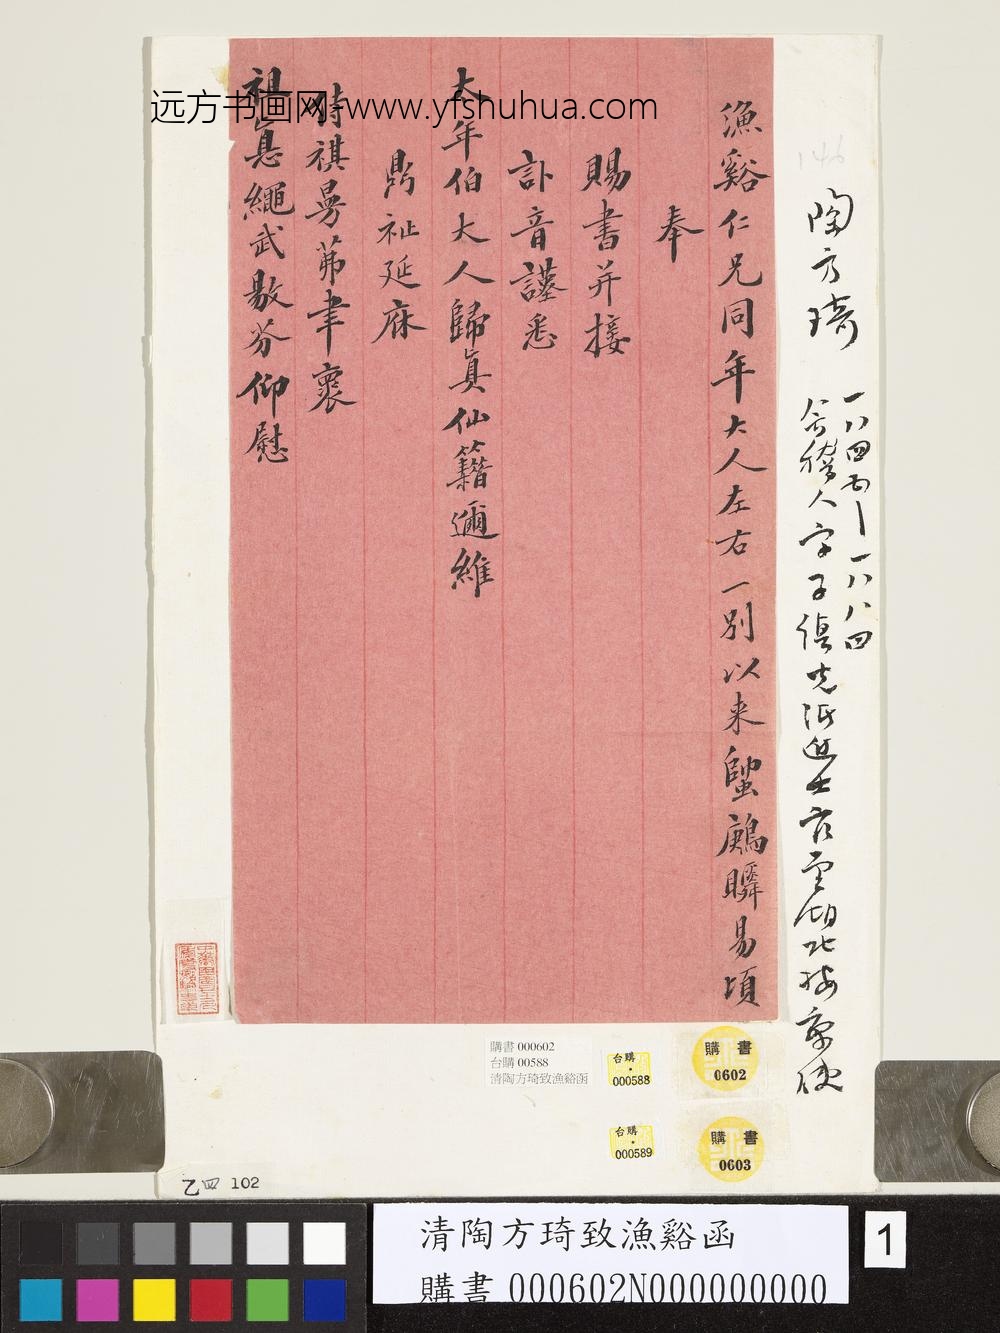 远方书画网-www.yfshuhua.com
146
陶方琦
一八四五—一八八四
會稽人字子縝光緒進士官至湖北按察使
漁谿仁兄同年大人左右一別以来蛩鷓瞬易頃
奉
賜書并接
訃音謹悉
太年伯大人歸真仙籍邇維
鼎祉延庥
侍祺曼茀聿襄
祖悳繩武敭芬仰慰
購書 000602
台購 00588
清陶方琦致漁谿函
台購
000588
購書
0602
台購
000589
購書
0603
乙四 102
清陶方琦致漁谿函
購書 000602N000000000
1